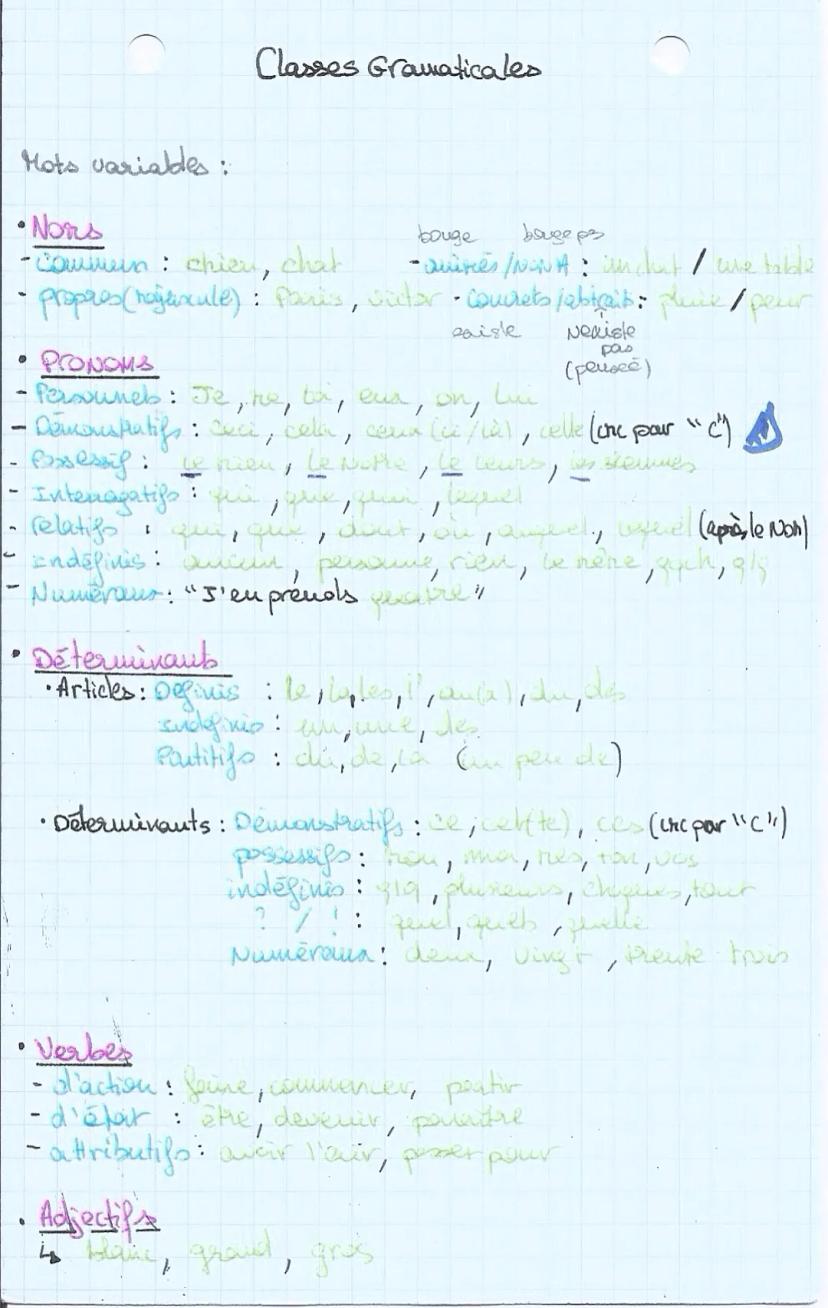 Classes Gramaticales
Mots variables :
• Noms
bouge bouge pas
- commun : chien, chat - animés/non A : un chat / une table
- propres (majuscule) : Paris, victor - concrets/abstraits : pluie / peur
existe N'existe
pas
(pensée)
• PRONOMS
- Personnels : Je, me, toi, eux, on, lui
- Démonstratifs : ceci, cela, ceux (ci/là), celle (cmc par "C")
- Possessif : Le mien, Le notre, Le leurs, les siennes
- Interrogatifs : qui, que, quoi, lequel
- relatifs : qui, que, dont, où, auquel, lequel (après le Nom)
- indéfinis : aucun, personne, rien, le même, qqch, qlq
- Numéraux : "J'en prends quatre"
• Déterminants
• Articles : Définis : le, la, les, l', au(x), du, des
Indéfinis : un, une, des
Partitifs : du, de, la (un peu de)
• Déterminants : Démonstratifs : ce, cet(te), ces (cmc par "C")
possessifs : mon, ma, mes, ton, vos
indéfinis : qlq, plusieurs, chaques, tout
? / ! : quel, quels, quelle
Numéraux : deux, vingt, trente trois
• Verbes
- d'action : faire, commencer, partir
- d'état : être, devenir, paraître
- attributifs : avoir l'air, passer pour
• Adjectifs
↳ blanc, grand, gros